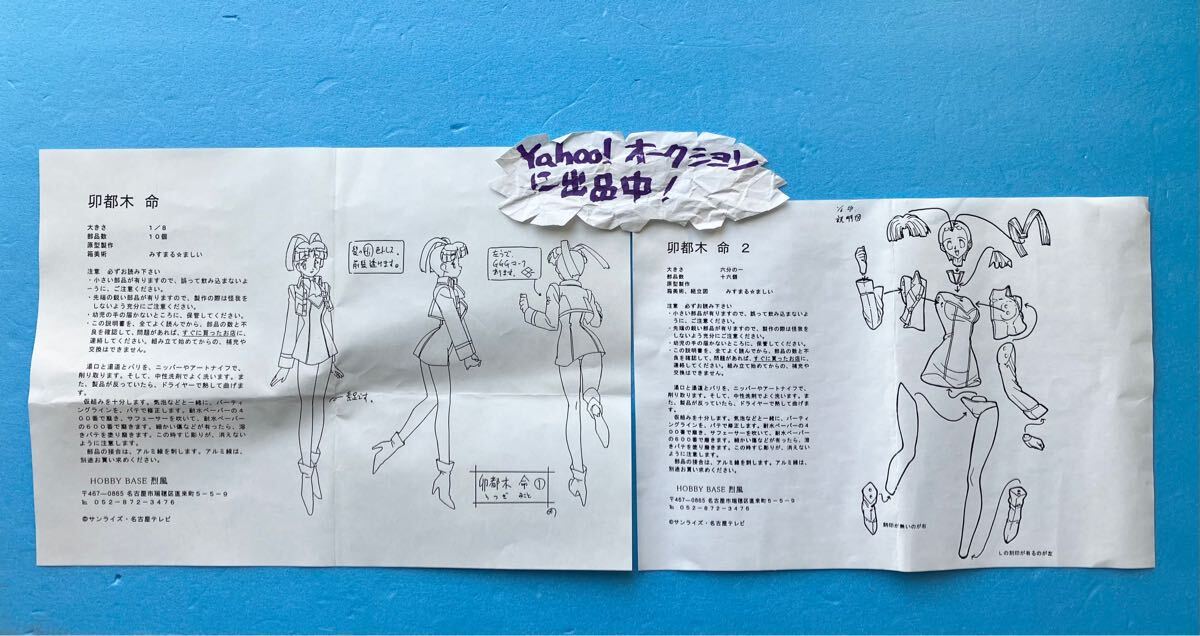 Yahoo! オークション
に出品中!
卯都木 命
大きさ 1/8
部品数 10個
原型製作
箱美術 みすまる☆ましい
注意 必ずお読み下さい
・小さい部品が有りますので、誤って飲み込まないよ
うに、ご注意ください。
・先端の鋭い部品が有りますので、製作の際は怪我を
しないよう充分にご注意ください。
・幼児の手の届かないところに、保管してください。
・この説明書を、全てよく読んでから、部品の数と不
良を確認して、問題があれば、すぐに買ったお店に、
連絡してください。組み立て始めてからの、補充や
交換はできません。
湯口と湯道とバリを、ニッパーやアートナイフで、
削り取ります。そして、中性洗剤でよく洗います。ま
た、製品が反っていたら、ドライヤーで熱して曲げま
す。
仮組みを十分します。気泡などと一緒に、パーティ
ングラインを、パテで修正します。耐水ペーパーの4
00番で磨き、サフェーサーを吹いて、耐水ペーパー
の600番で磨きます。細かい傷などが有ったら、溶
きパテを塗り磨きます。この時すじ彫りが、消えない
ように注意します。
部品の接合は、アルミ線を刺します。アルミ線は、
別途お買い求めください。
HOBBY BASE 烈風
〒467-0865 名古屋市瑞穂区直来町5-5-9
℡ 052-872-3476
©サンライズ・名古屋テレビ
左うで、
GGGマーク
あります。
卯都木 命 ①
うつぎ みこと
1/6 卯
説明図
卯都木 命 2
大きさ 六分の一
部品数 十六個
原型製作
箱美術、組立図 みすまる☆ましい
注意 必ずお読み下さい
・小さい部品が有りますので、誤って飲み込まないよ
うに、ご注意ください。
・先端の鋭い部品が有りますので、製作の際は怪我を
しないよう充分にご注意ください。
・幼児の手の届かないところに、保管してください。
・この説明書を、全てよく読んでから、部品の数と不
良を確認して、問題があれば、すぐに買ったお店に、
連絡してください。組み立て始めてからの、補充や
交換はできません。
湯口と湯道とバリを、ニッパーやアートナイフで、
削り取ります。そして、中性洗剤でよく洗います。ま
た、製品が反っていたら、ドライヤーで熱して曲げま
す。
仮組みを十分します。気泡などと一緒に、パーティ
ングラインを、パテで修正します。耐水ペーパーの4
00番で磨き、サフェーサーを吹いて、耐水ペーパー
の600番で磨きます。細かい傷などが有ったら、溶
きパテを塗り磨きます。この時すじ彫りが、消えない
ように注意します。
部品の接合は、アルミ線を刺します。アルミ線は、
別途お買い求めください。
HOBBY BASE 烈風
〒467-0865 名古屋市瑞穂区直来町5-5-9
℡ 052-872-3476
©サンライズ・名古屋テレビ
刻印が無いのが右
Lの刻印が有るのが左